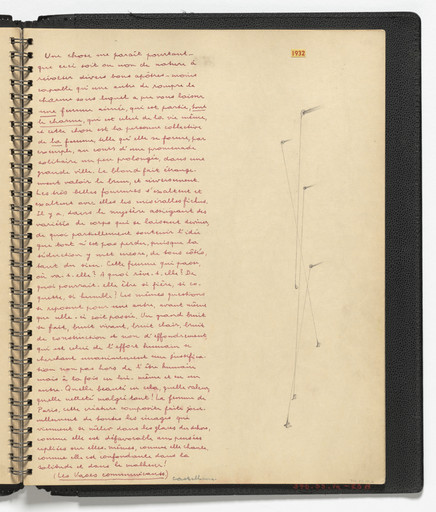 1932
Une chose me paraît pourtant—
que ceci soit ou non de nature à
révolter divers sous apôtres—moins
capable qu'une autre de rompre
charme sous lequel a pu vous laisser
une femme aimée, qui est partie, tout
le charme, qui est celui de la vie même,
et cette chose est la personne collective
de la femme, telle qu'elle se forme, par
exemple, au cours d'une promenade
solitaire un peu prolongée, dans une
grande ville. Le blond fait étrange-
ment valoir le brun, et inversement.
Les très belles fourrures s'exaltent et
exaltent avec elles les misérables fichus.
Il y a, dans le mystère assez
variétés de corps qui se laissent deviner,
de quoi partiellement soutenir l'idée
que tout n'est pas perdu, puisque la
séduction y met encore, de tous côtés,
tant du sien. Cette femme qui passe,
où va-t-elle? à quoi rêve-t-elle? De
quoi pourrait-elle être si fière, si co-
quette, si humble? Les mêmes questions
se reposent pour une autre, avant même
que celle-ci soit passée. Un grand bruit
se fait, bruit vivant, bruit clair, bruit
de construction et non d'effondrement,
qui est celui de l'effort humain
cherchant unanimement une justifica-
tion non pas hors de l'être humain
mais à la fois en lui-même et en un
autre. Quelle beauté en cela, quelle valeur,
quelle netteté malgré tout! La femme de
Paris, cette créature composite faite jour-
nellement de toutes les images qui
viennent se mirer dans les glaces du dehors,
comme elle est défavorable aux pensées
repliées sur elles-mêmes, comme elle chante,
comme elle est confondante dans la
solitude et dans le malheur!
(Les Vases communicants)